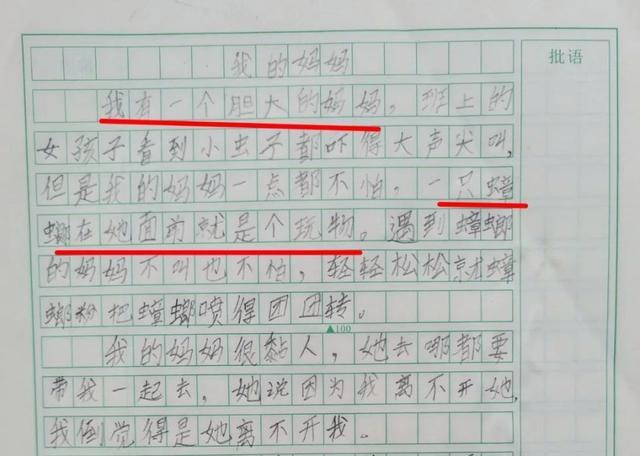 批语
我的妈妈
我有一个胆大的妈妈，班上的
女孩子看到小虫子都吓得大声尖叫，
但是我的妈妈一点都不怕，一只蟑
螂在她面前就是个玩物。遇到蟑螂
的妈妈不叫也不怕，轻轻松松就蟑
螂粉把蟑螂喷得团团转。
▲100
我的妈妈很黏人，她去哪都要
带我一起去，她说因为我离不开她，
我倒觉得是她离不开我。